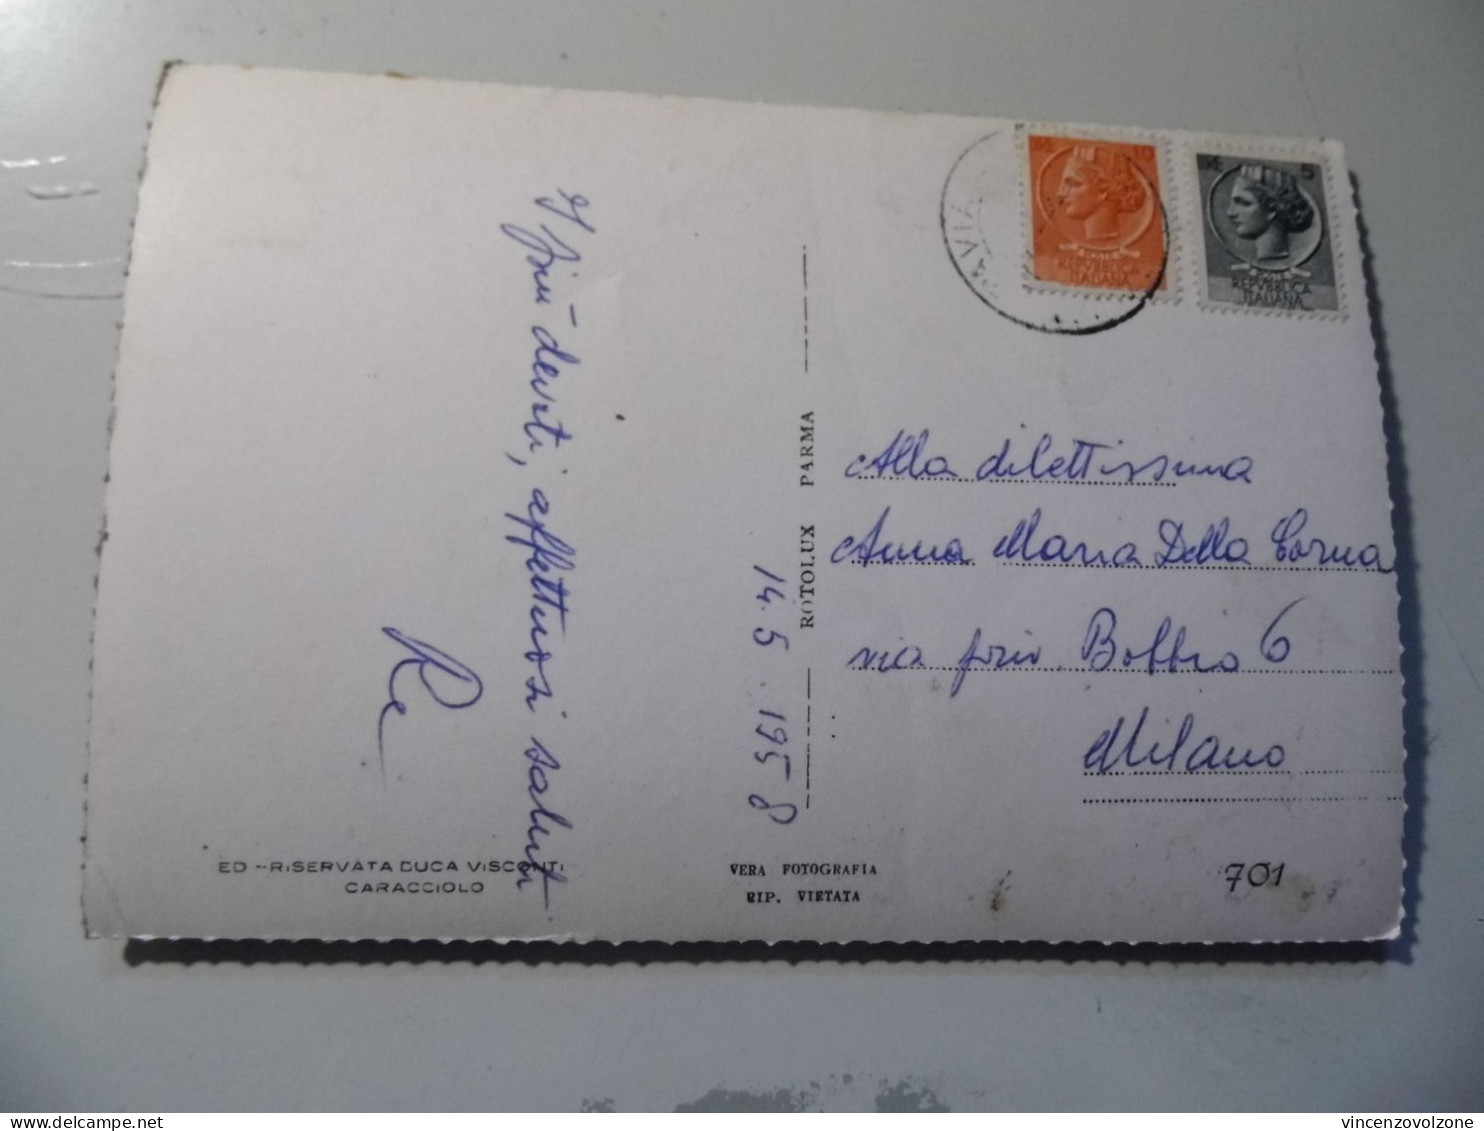 I più devoti, affettuosi saluti
Re
14.5.1958
ED - RISERVATA DUCA VISCONTI
CARACCIOLO
ROTOLUX PARMA
VERA FOTOGRAFIA
RIP. VIETATA
PAVIA
LIRE 10
REPVBBLICA
ITALIANA
LIRE 5
REPVBBLICA
ITALIANA
Alla dilettissima
Anna Maria Della Corna
via Bobbio 6
Milano
701
vincenzovolzone